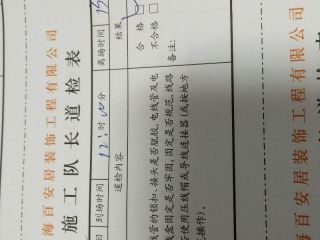 海百安居装饰工程有限公司
施工队长道检表
日 到场时间 12，时 00 分 离场时间 13
道检内容 结果
线管的锁扣、接头是否脱胶，电线管及电
线盒固定是否牢固，固定是否规范，线路
否使用压线帽或导线连接器（或按地方
操作）。
合格
不合格
备注：
海百安居装饰工程有限公司